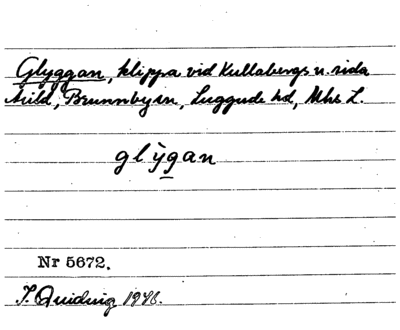 Glyggan, klippa vid Kullabergs n. sida
Arild, Brunnby sn, Luggude hd, Mhs L.
glỳgan
Nr 5672.
J. Quiding 1946.